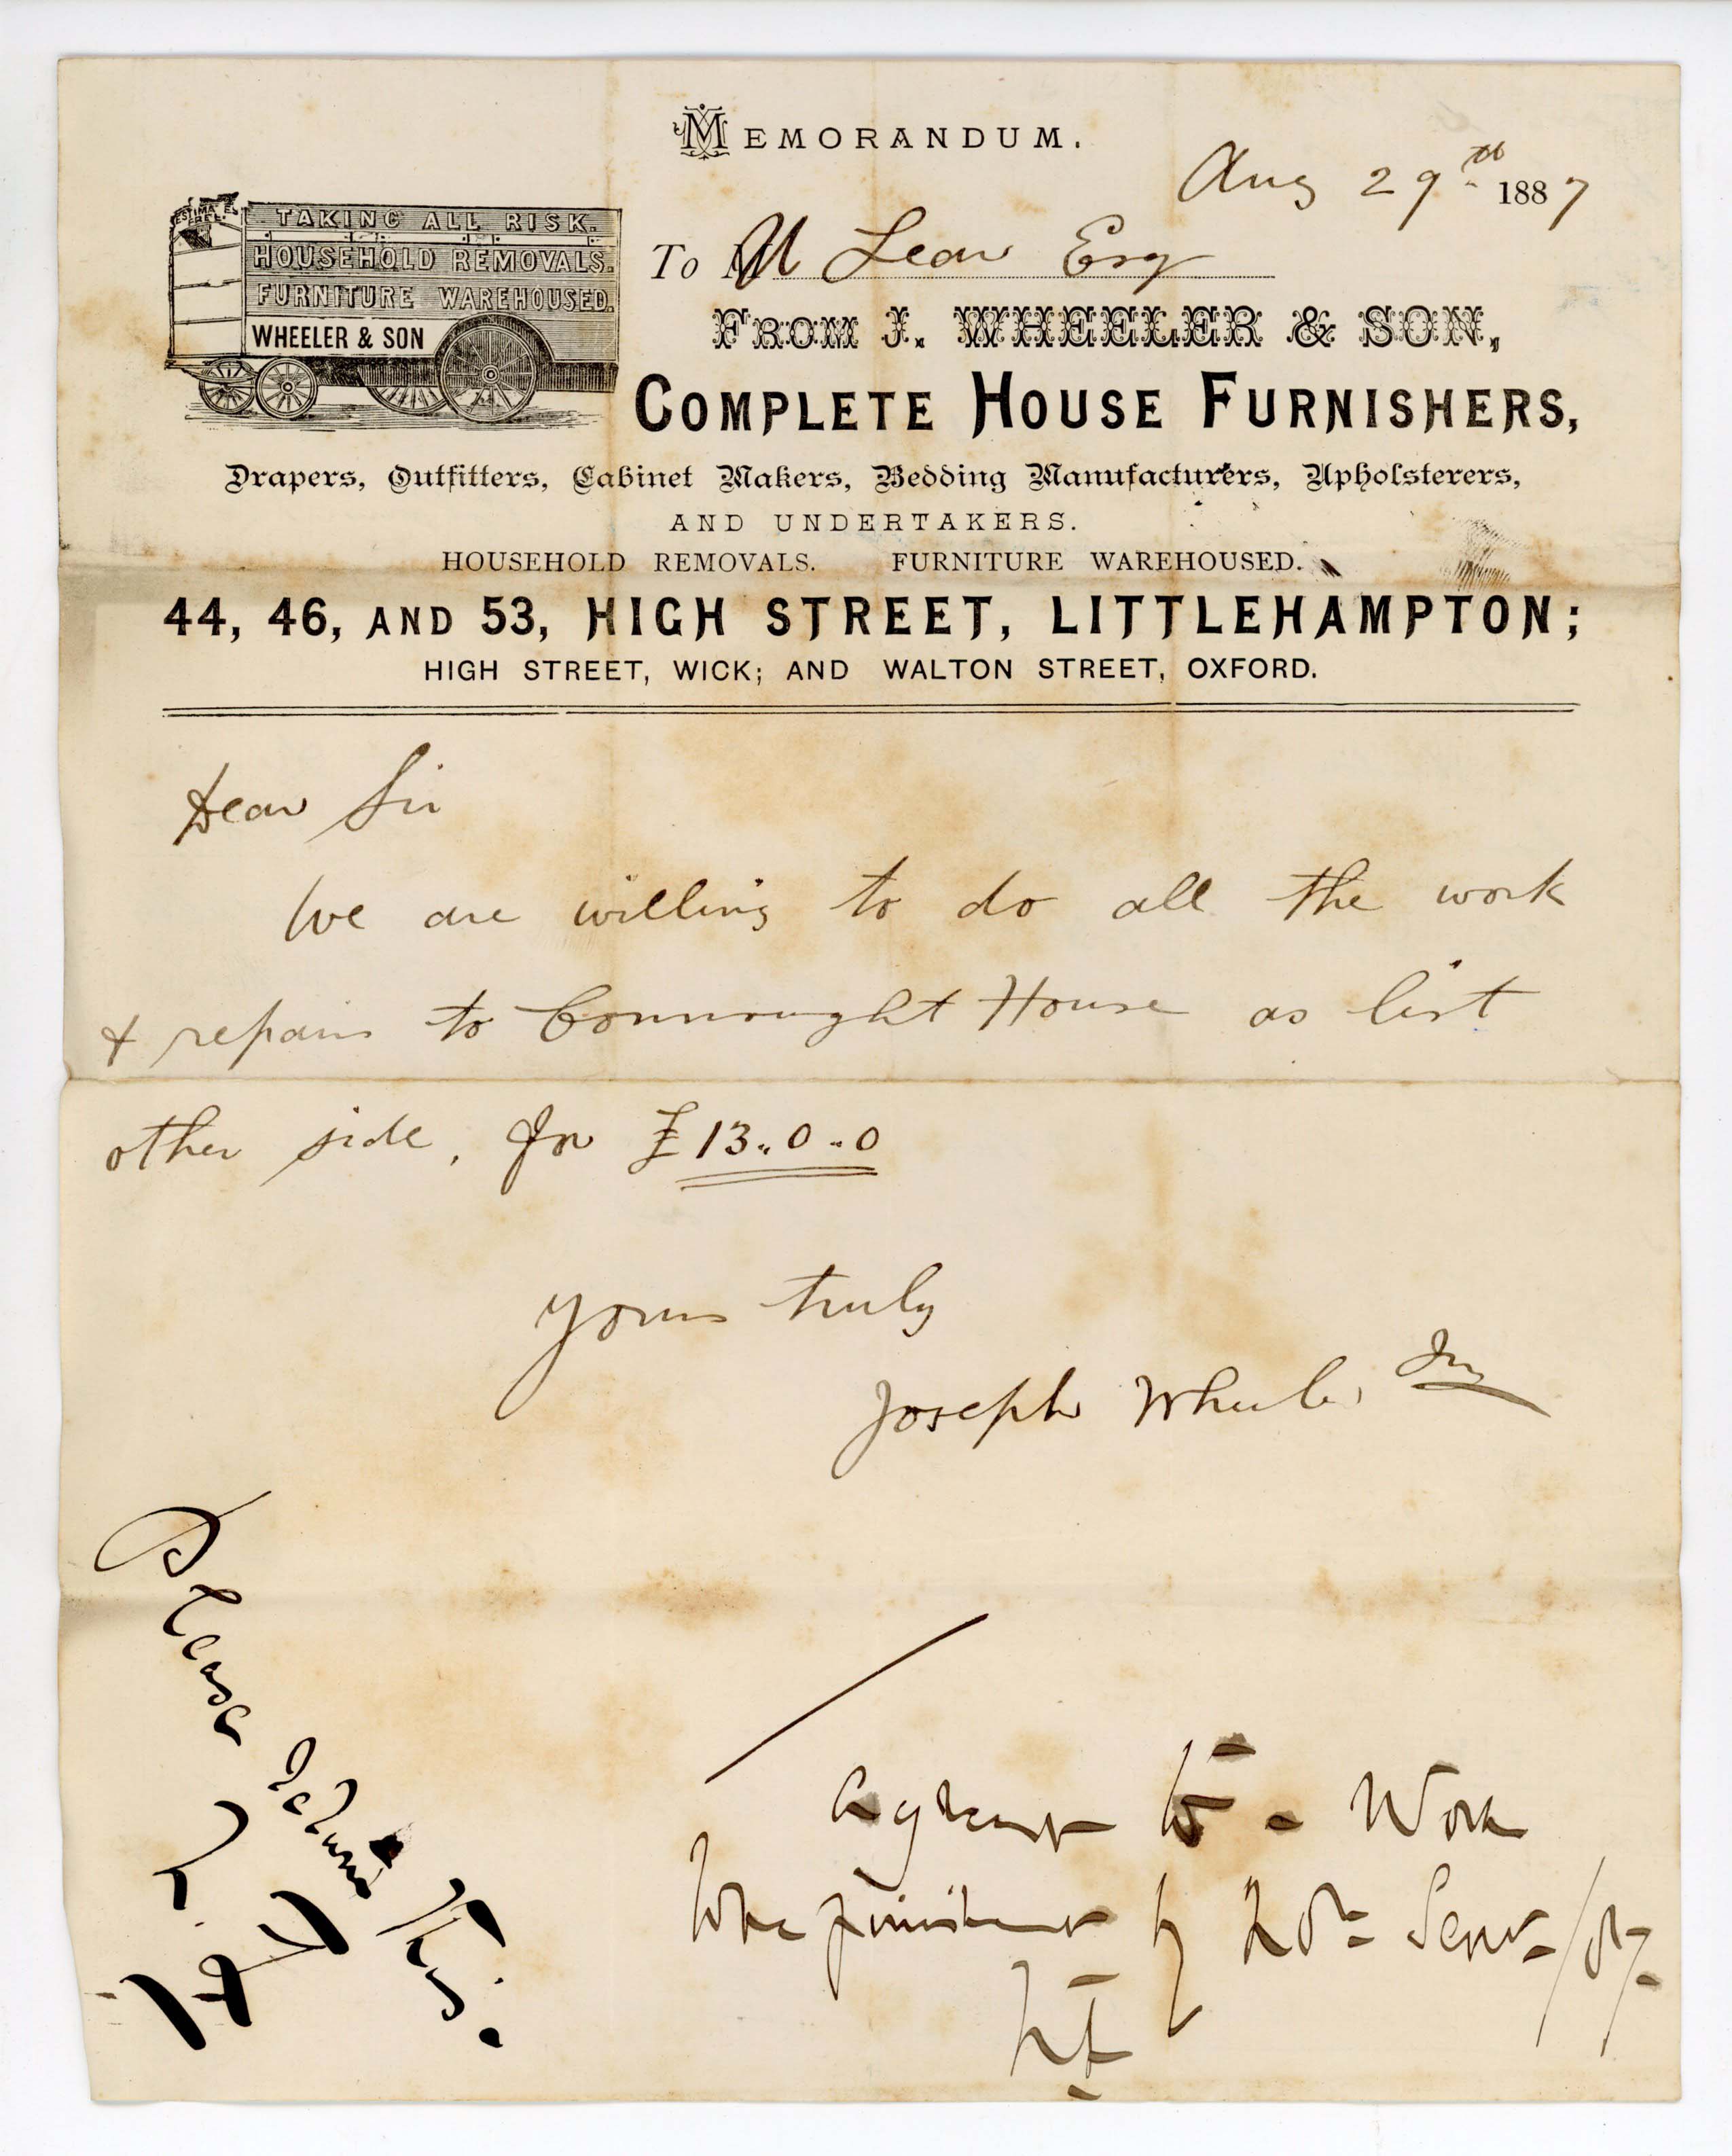 MEMORANDUM.
Aug 29th 1887
ESTIMATES
TAKING ALL RISK.
HOUSEHOLD REMOVALS.
FURNITURE WAREHOUSED.
WHEELER & SON
To M Lear Esq
FROM J. WHEELER & SON,
COMPLETE HOUSE FURNISHERS,
Drapers, Outfitters, Cabinet Makers, Bedding Manufacturers, Upholsterers,
AND UNDERTAKERS.
HOUSEHOLD REMOVALS. FURNITURE WAREHOUSED.
44, 46, AND 53, HIGH STREET, LITTLEHAMPTON;
HIGH STREET, WICK; AND WALTON STREET, OXFORD.
Dear Sir
We are willing to do all the work
& repairs to Connaught House as list
other side, for £13.0.0
Yours truly
Joseph Wheeler Jnr
Please return This.
Work
by Sept